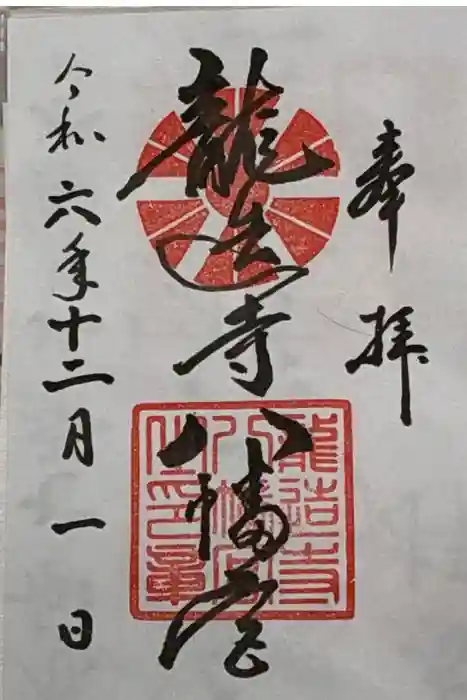 奉拝
龍造寺八幡宮
龍造寺
八幡宮
之印章
令和六年十二月一日